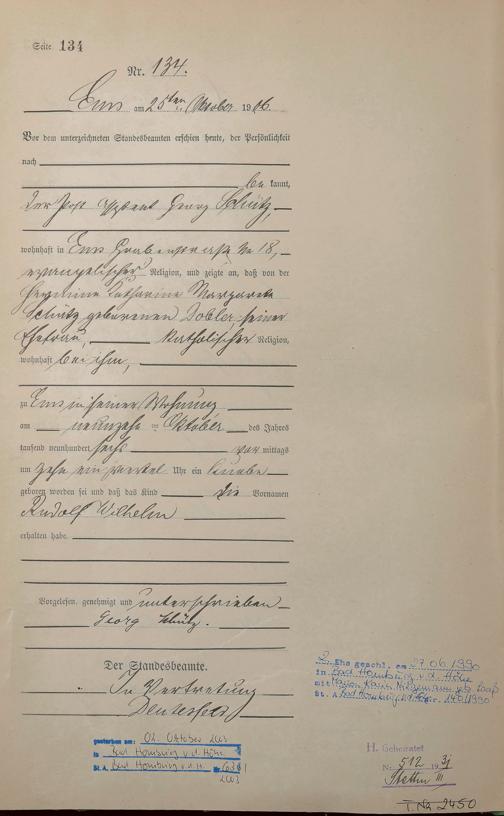 Seite 134
Nr. 134.
Ems am 25ten Oktober 1906.
Vor dem unterzeichneten Standesbeamten erschien heute, der Persönlichkeit
nach
be kannt,
der Post Georg Schütz,
wohnhaft in Ems Grabenstraße No 18,
evangelischer Religion, und zeigte an, daß von der
Katharine Margareta
Schütz geborenen Dobler, seiner
Ehefrau, katholischer Religion,
wohnhaft bei ihm,
zu Ems in seiner Wohnung
am neunzehn ten Oktober des Jahres
tausend neunhundert sechs vor mittags
um zehn ein viertel Uhr ein Knabe
geboren worden sei und daß das Kind die Vornamen
Rudolf Wilhelm
erhalten habe.
Vorgelesen, genehmigt und unterschrieben
Georg Schütz.
Der Standesbeamte.
In Vertretung
2. Ehe geschl. am 27.06.1990
in Bad Homburg v.d. Höhe
mit geb.
St. A. Bad Homburg Nr. 240/1990
gestorben am: 02. Oktober 2003
in Bad Homburg v.d. Höhe
St. A. Bad Homburg v.d.H. Nr.
2003
H. Geheiratet
Nr. 512 1931
Stettin III
T. Nr. 2450